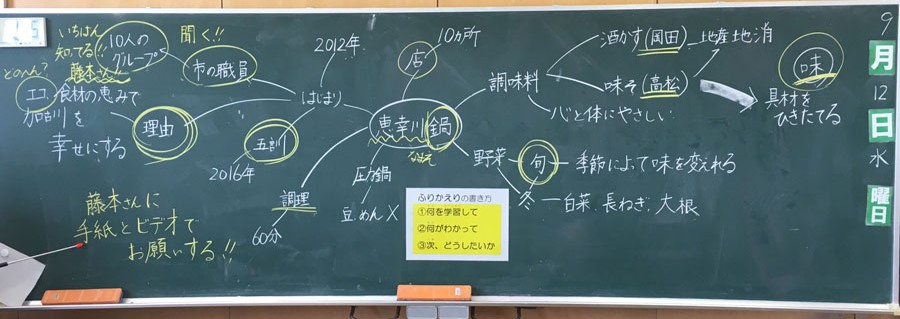 9
月
12
日
水
曜日
いちばん
知ってる!!
10人の
グループ
聞く!!
市の職員
2012年
はじまり
どのへん?
藤本さん!!
エコ
食材の恵みで
加古川を
幸せにする
理由
五訓
2016年
藤本さんに
手紙とビデオで
お願いする!!
店
10カ所
恵幸川鍋
調理
60分
圧力鍋
豆、めん×
調味料
酒かす(岡田)
地産地消
味そ(高松)
心と体にやさしい
味
具材を
ひきたてる
野菜
旬
季節によって味を変えれる
冬
白菜、長ねぎ、大根
ふりかえりの書き方
①何を学習して
②何がわかって
③次、どうしたいか